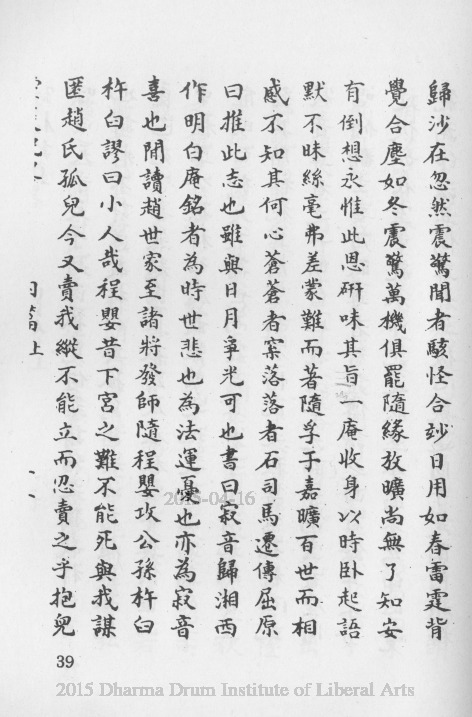 歸沙在忽然震驚聞者駭怪合妙日用如春雷霆背
覺合塵如冬震驚萬機俱罷隨緣放曠尚無了知安
有倒想永惟此恩研味其旨一庵收身以時卧起語
默不昧絲毫弗差蒙難而著隨孚于嘉曠百世而相
感不知其何心蒼蒼者窠落落者石司馬遷傳屈原
曰推此志也雖與日月爭光可也書曰寂音歸湘西
作明白庵銘者為時世悲也為法運憂也亦為寂音
喜也閒讀趙世家至諸將發師隨程嬰攻公孫杵臼
杵臼謬曰小人哉程嬰昔下宮之難不能死與我謀
匿趙氏孤兒今又賣我縱不能立而忍賣之乎抱兒
上
39
2015-04-16
2015 Dharma Drum Institute of Liberal Arts